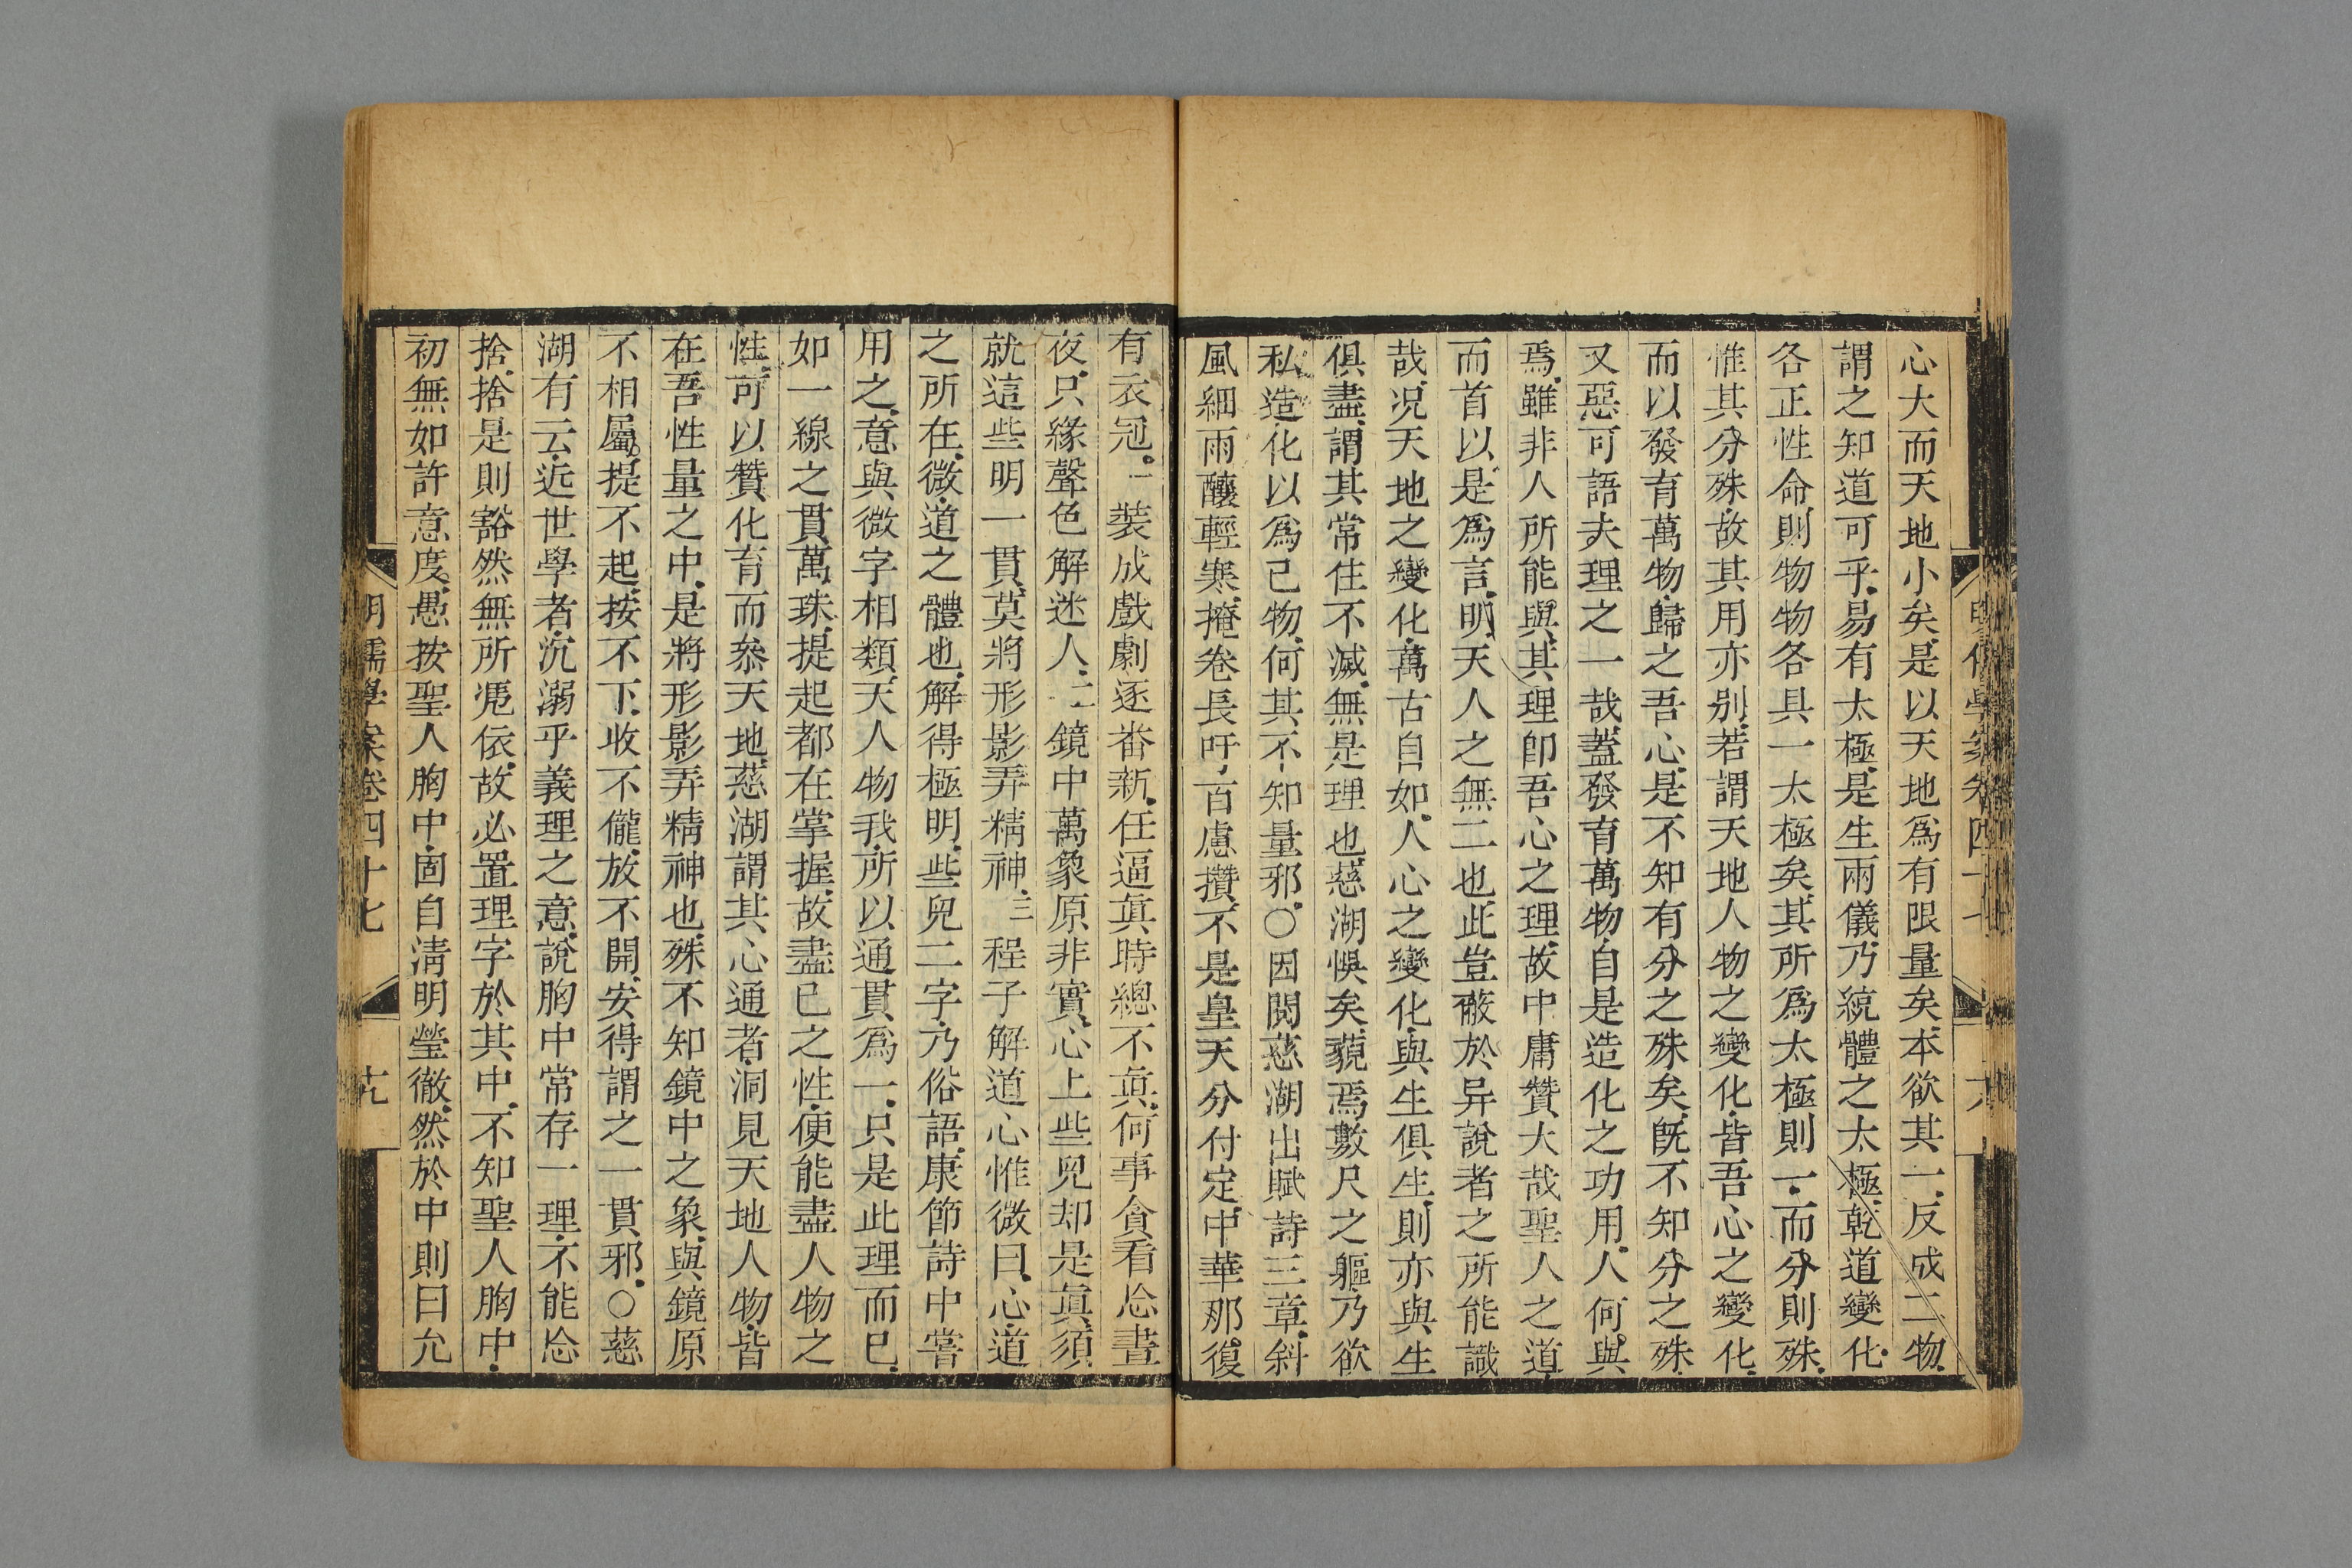 心大而天地小矣是以天地爲有限量矣本欲其一反成二物
謂之知道可乎易有太極是生兩儀乃統體之太極乾道變化
各正性命則物物各具一太極矣其所爲太極則一而分則殊
惟其分殊故其用亦别若謂天地人物之變化皆吾心之變化
而以發育萬物歸之吾心是不知有分之殊矣旣不知分之殊
又惡可語夫理之一哉蓋發育萬物自是造化之功用人何與
焉雖非人所能與其理卽吾心之理故中庸贊大哉聖人之道
而首以是爲言明天人之無二也此豈蔽於异說者之所能識
哉况天地之變化萬古自如人心之變化與生俱生則亦與生
俱盡謂其常住不滅無是理也慈湖悞矣藐焉數尺之軀乃欲
私造化以爲己物何其不知量邪○因閱慈湖出賦詩三章斜
風細雨釀輕寒掩卷長吁百慮攢不是皇天分付定中華那復
有衣冠一裝成戲劇逐番新任逼眞時總不眞何事貪看忩晝
夜只緣聲色解迷人二鏡中萬象原非實心上些兒却是眞須
就這些明一貫莫將形影弄精神三程子解道心惟微曰心道
之所在微道之體也解得極明些兒二字乃俗語康節詩中嘗
用之意與微字相類天人物我所以通貫爲一只是此理而已
如一線之貫萬珠提起都在掌握故盡己之性便能盡人物之
性可以贊化育而叅天地慈湖謂其心通者洞見天地人物皆
在吾性量之中是將形影弄精神也殊不知鏡中之象與鏡原
不相屬提不起按不下收不儱放不開安得謂之一貫邪○慈
湖有云近世學者沉溺乎義理之意說胸中常存一理不能忩
捨捨是則豁然無所凭依故必置理字於其中不知聖人胸中
初無如許意度愚按聖人胸中固自淸明瑩徹然於中則曰允
明儒學案卷四十七